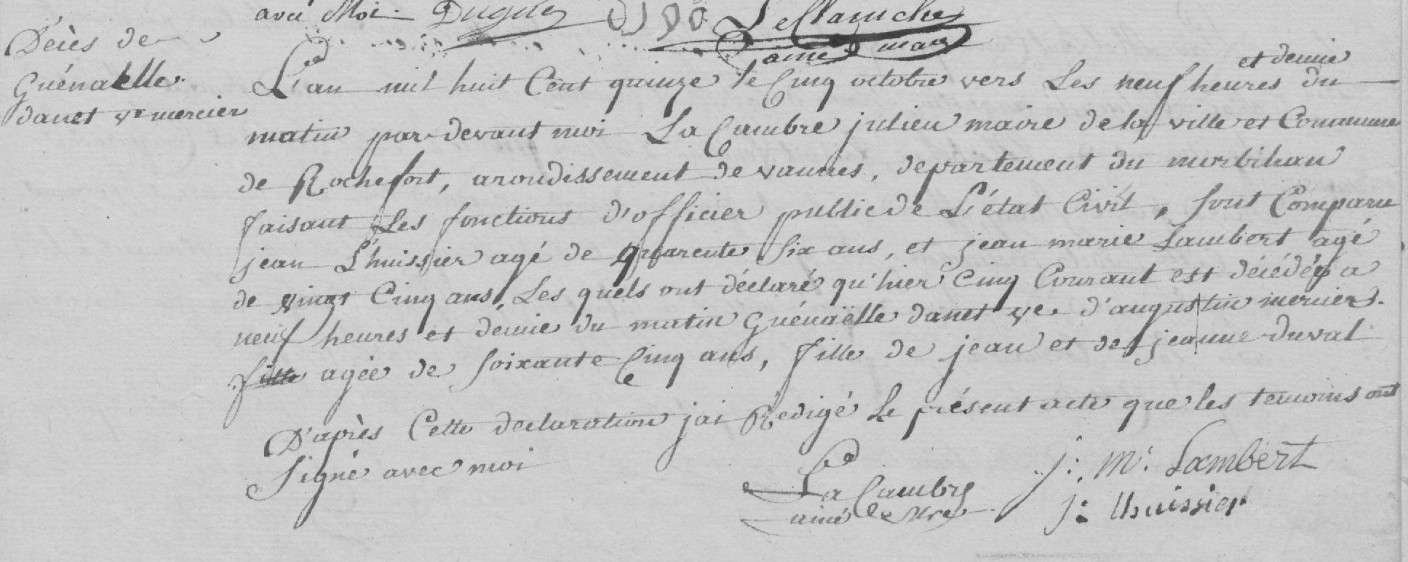 avec Moi
Décès de
Guénaëlle
danet ve mercier
L'an mil huit Cent quinze le Cinq octobre vers Les neuf heures et demie du
matin par-devant moi La Cambre julien maire de la ville et Commune
de Rochefort, arondissement de vannes, departement du morbihan
faisant Les fonctions d'officier public de L'état Civil, sont Comparu
jean L'huissier agé de quarente six ans, et jean marie Lambert agé
de vingt Cinq ans, Les quels ont déclaré qu'hier Cinq Courant est décédée a
neuf heures et demie du matin Guénaëlle danet ve. d'augustin mercier.
fille agée de soixante Cinq ans, fille de jean et de jeanne duval
D'après Cette declaration jai Rédigé Le présent acte que les temoins ont
Signé avec moi
La Cambre
ainé
j: Mie Lambert
j: lhuissier